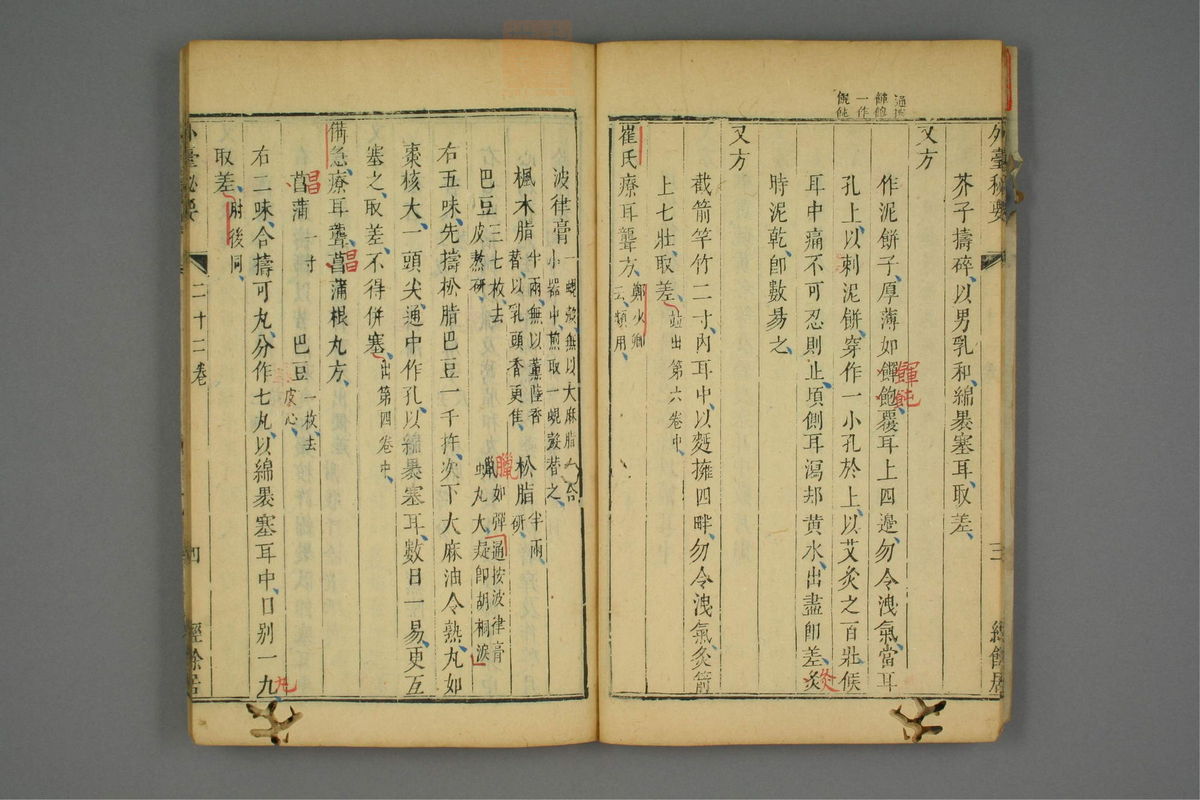 外臺秘要
三
經餘居
芥子擣碎以男乳和綿裹塞耳取差
又方
作泥餅子厚薄如餫飩覆耳上四邊勿令洩氣當耳
餫飩
孔上以刺泥餅穿作一小孔於上以艾灸之百壯候
耳中痛不可忍則止頃側耳瀉却黃水出盡即差灸
灸
時泥乾即數易之
一作
又方
截箭竿竹二寸內耳中以麪擁四畔勿令洩氣灸箭
上七壯取差並出第六卷中
崔氏療耳聾方鄭火卿云頻用
波律膏一蜆殼無以大麻脂一合小器中煎取一蜆殼替之
楓木脂半兩無以薰陸香替以乳頭香更隹 松脂半兩研
巴豆三七枚去皮熬研 蠟如彈丸大 通按波律膏疑即胡桐淚
臘
右五味先擣松脂巴豆一千杵次下大麻油令熟丸如
棗核大一頭尖通中作孔以綿裹塞耳數日一易更互
塞之取差不得併塞出第四卷中
備急療耳聾菖蒲根丸方
昌
菖蒲一寸 巴豆一枚去皮心
昌
右二味合擣可丸分作七丸以綿裹塞耳中日別一九
丸
取差肘後同
外臺秘要
二十二卷
四
經餘居